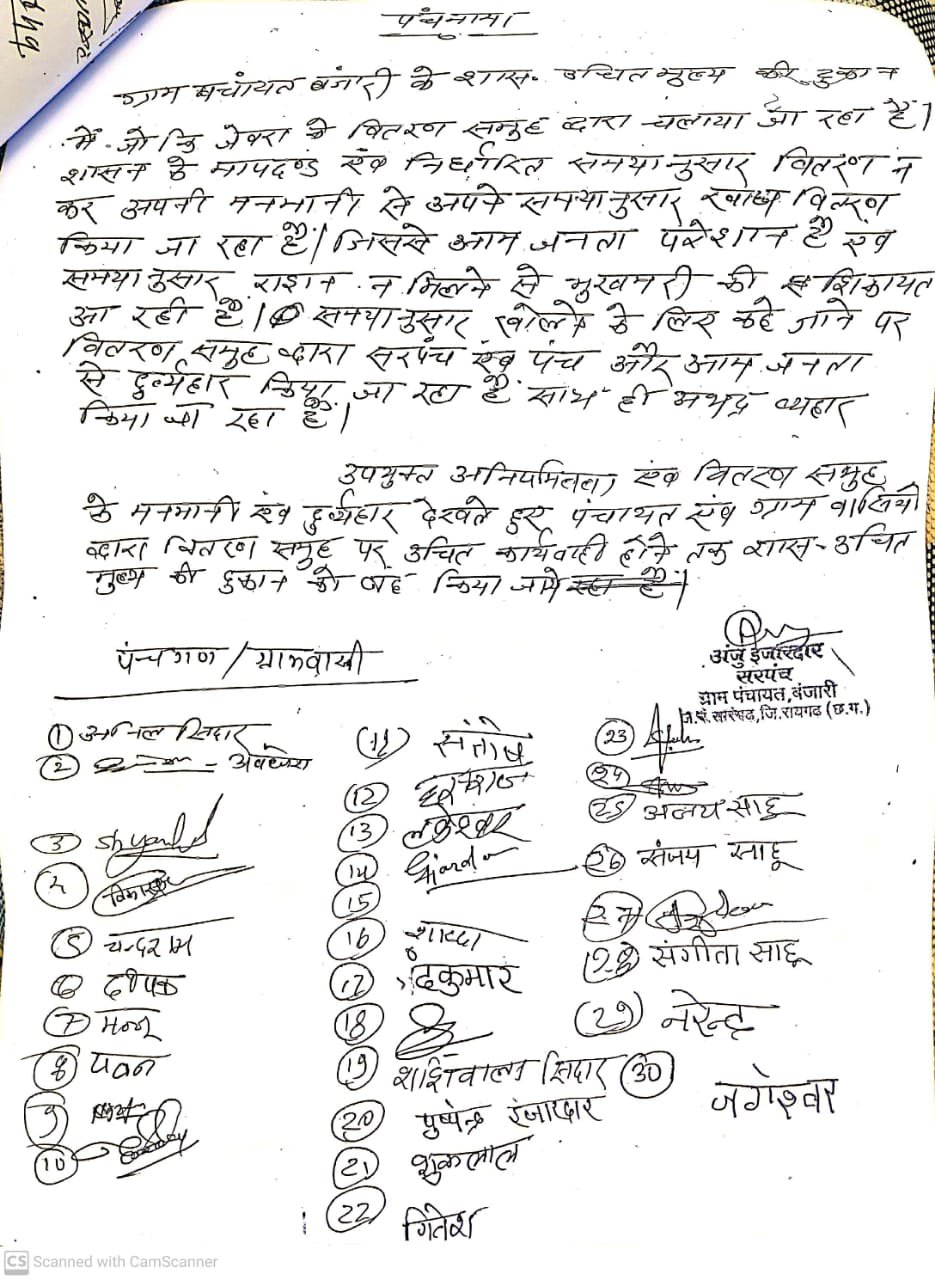 पंचनामा
ग्राम पंचायत बंजारी के शास. उचित मुल्य की दुकान
में जो कि जेवरा के वितरण समुह द्वारा चलाया जा रहा है।
शासन के मापदण्ड एंव निर्धारित समयानुसार वितरण न
कर अपनी मनमानी से अपने समयानुसार खाद्य वितरण
किया जा रहा है। जिससे आम जनता परेशान है एंव
समयानुसार राशन न मिलने से भुखमरी की शिकायत
आ रही है। समयानुसार खोलने के लिए कहे जाने पर
वितरण समुह द्वारा सरपंच एंव पंच और आम जनता
से दुर्व्यहार किया जा रहा है साथ ही अभद्र व्यहार
किया जा रहा है।
उपयुक्त अनियमितता एंव वितरण समुह
के मनमानी एंव दुर्व्यहार देखते हुए पंचायत एंव ग्राम वासियो
द्वारा वितरण समुह पर उचित कार्यवाही होने तक शास-उचित
मुल्य की दुकान को बंद किया जाये
अंजु इजारदार
सरपंच
ग्राम पंचायत, बंजारी
ज.पं. सारंगढ़, जि.रायगढ (छ.ग.)
पंचगण / ग्रामवासी
① अनिल सिदार
②
③
④
⑤ चन्दराम
⑥ दीपक
⑦ मन्जू
⑧ पवन
⑨
⑩
⑪ संतोष
⑫
⑬ लकेश्वर
⑭
⑮
⑯ शारदा
⑰
⑱
⑲ सिदार
⑳ पुष्पेन्द्र इंजारदार
㉑ शुकलाल
㉒ गितेश
㉓
㉔
㉕ अजय साहू
㉖ संजय साहू
㉗
㉘ संगीता साहू
㉙ नरेन्द्र
㉚ जगेश्वर
CS Scanned with CamScanner